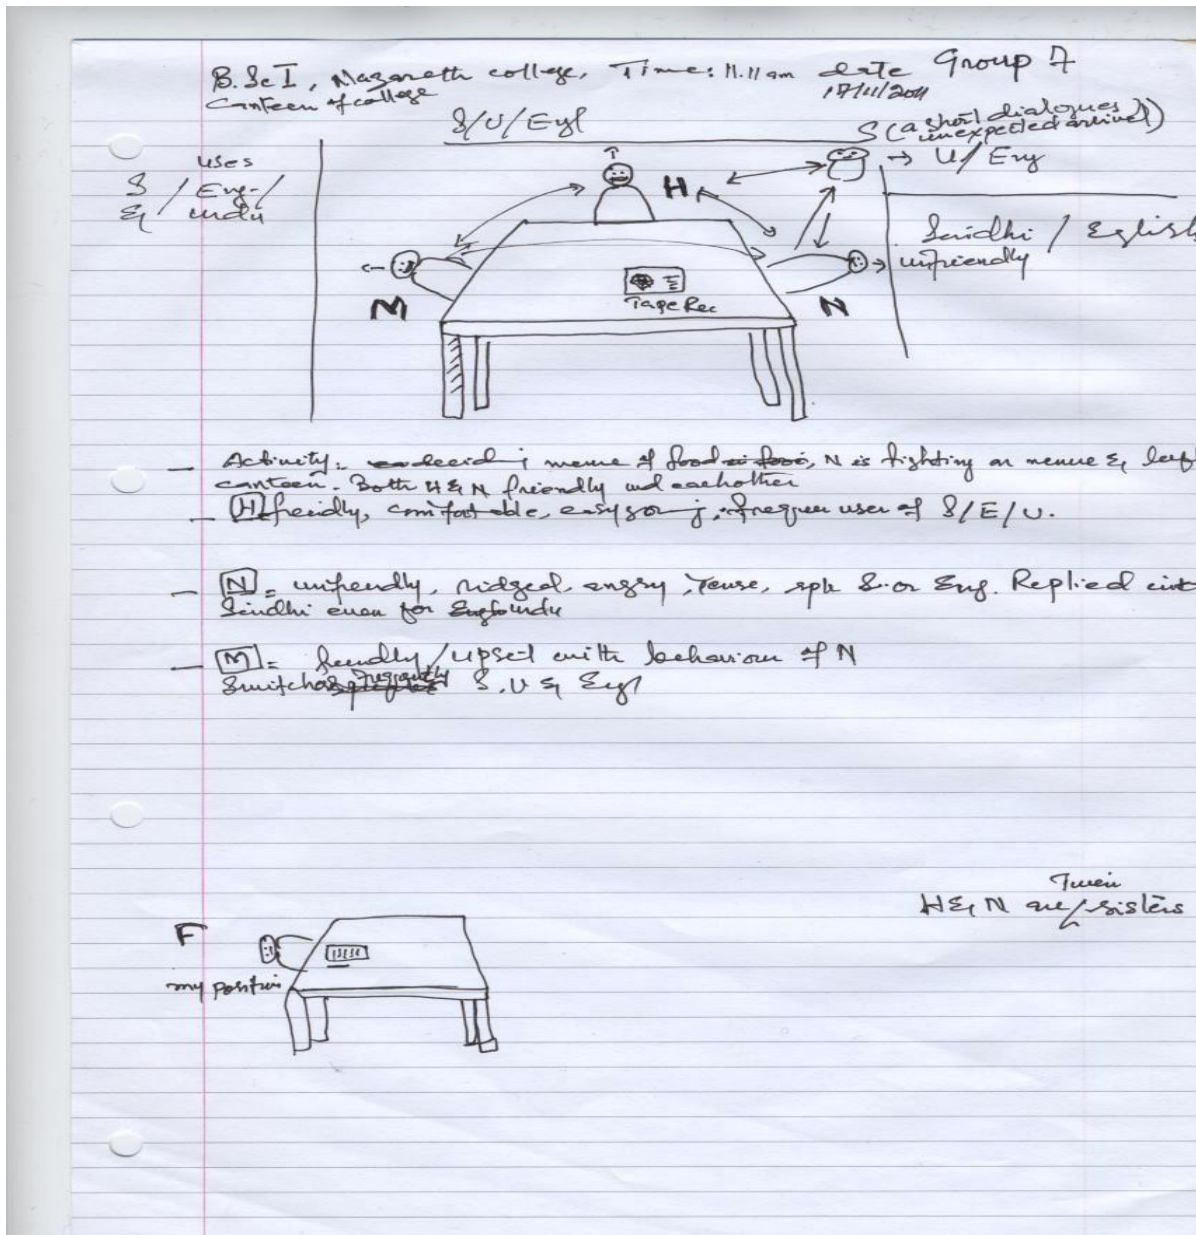 B.Sc I, Nazareth college, Time: 11.11 am date Group 7
Canteen of college
17/11/2011
S/U/Eyl
S (a short dialogues
unexpected arrival)
→ U/ Eng
uses
S / Eng /
& urdu
H
Sindhi / Eglish
unfriendly
M
N
Tape Rec
Activity: menue of food N is fighting on menue &
canteen. Both H & N friendly eachother
H = freidly, comfortable, easygoing, user of S/E/U.
N = unfrendly, ridged, angry, Tense, spk S. or Eng. Replied
Sindhi even for urdu
M = freindly/upset with behaviour of N
Switches frequently S, U & Eyl
Twin
H & N are / sisters
F
my position